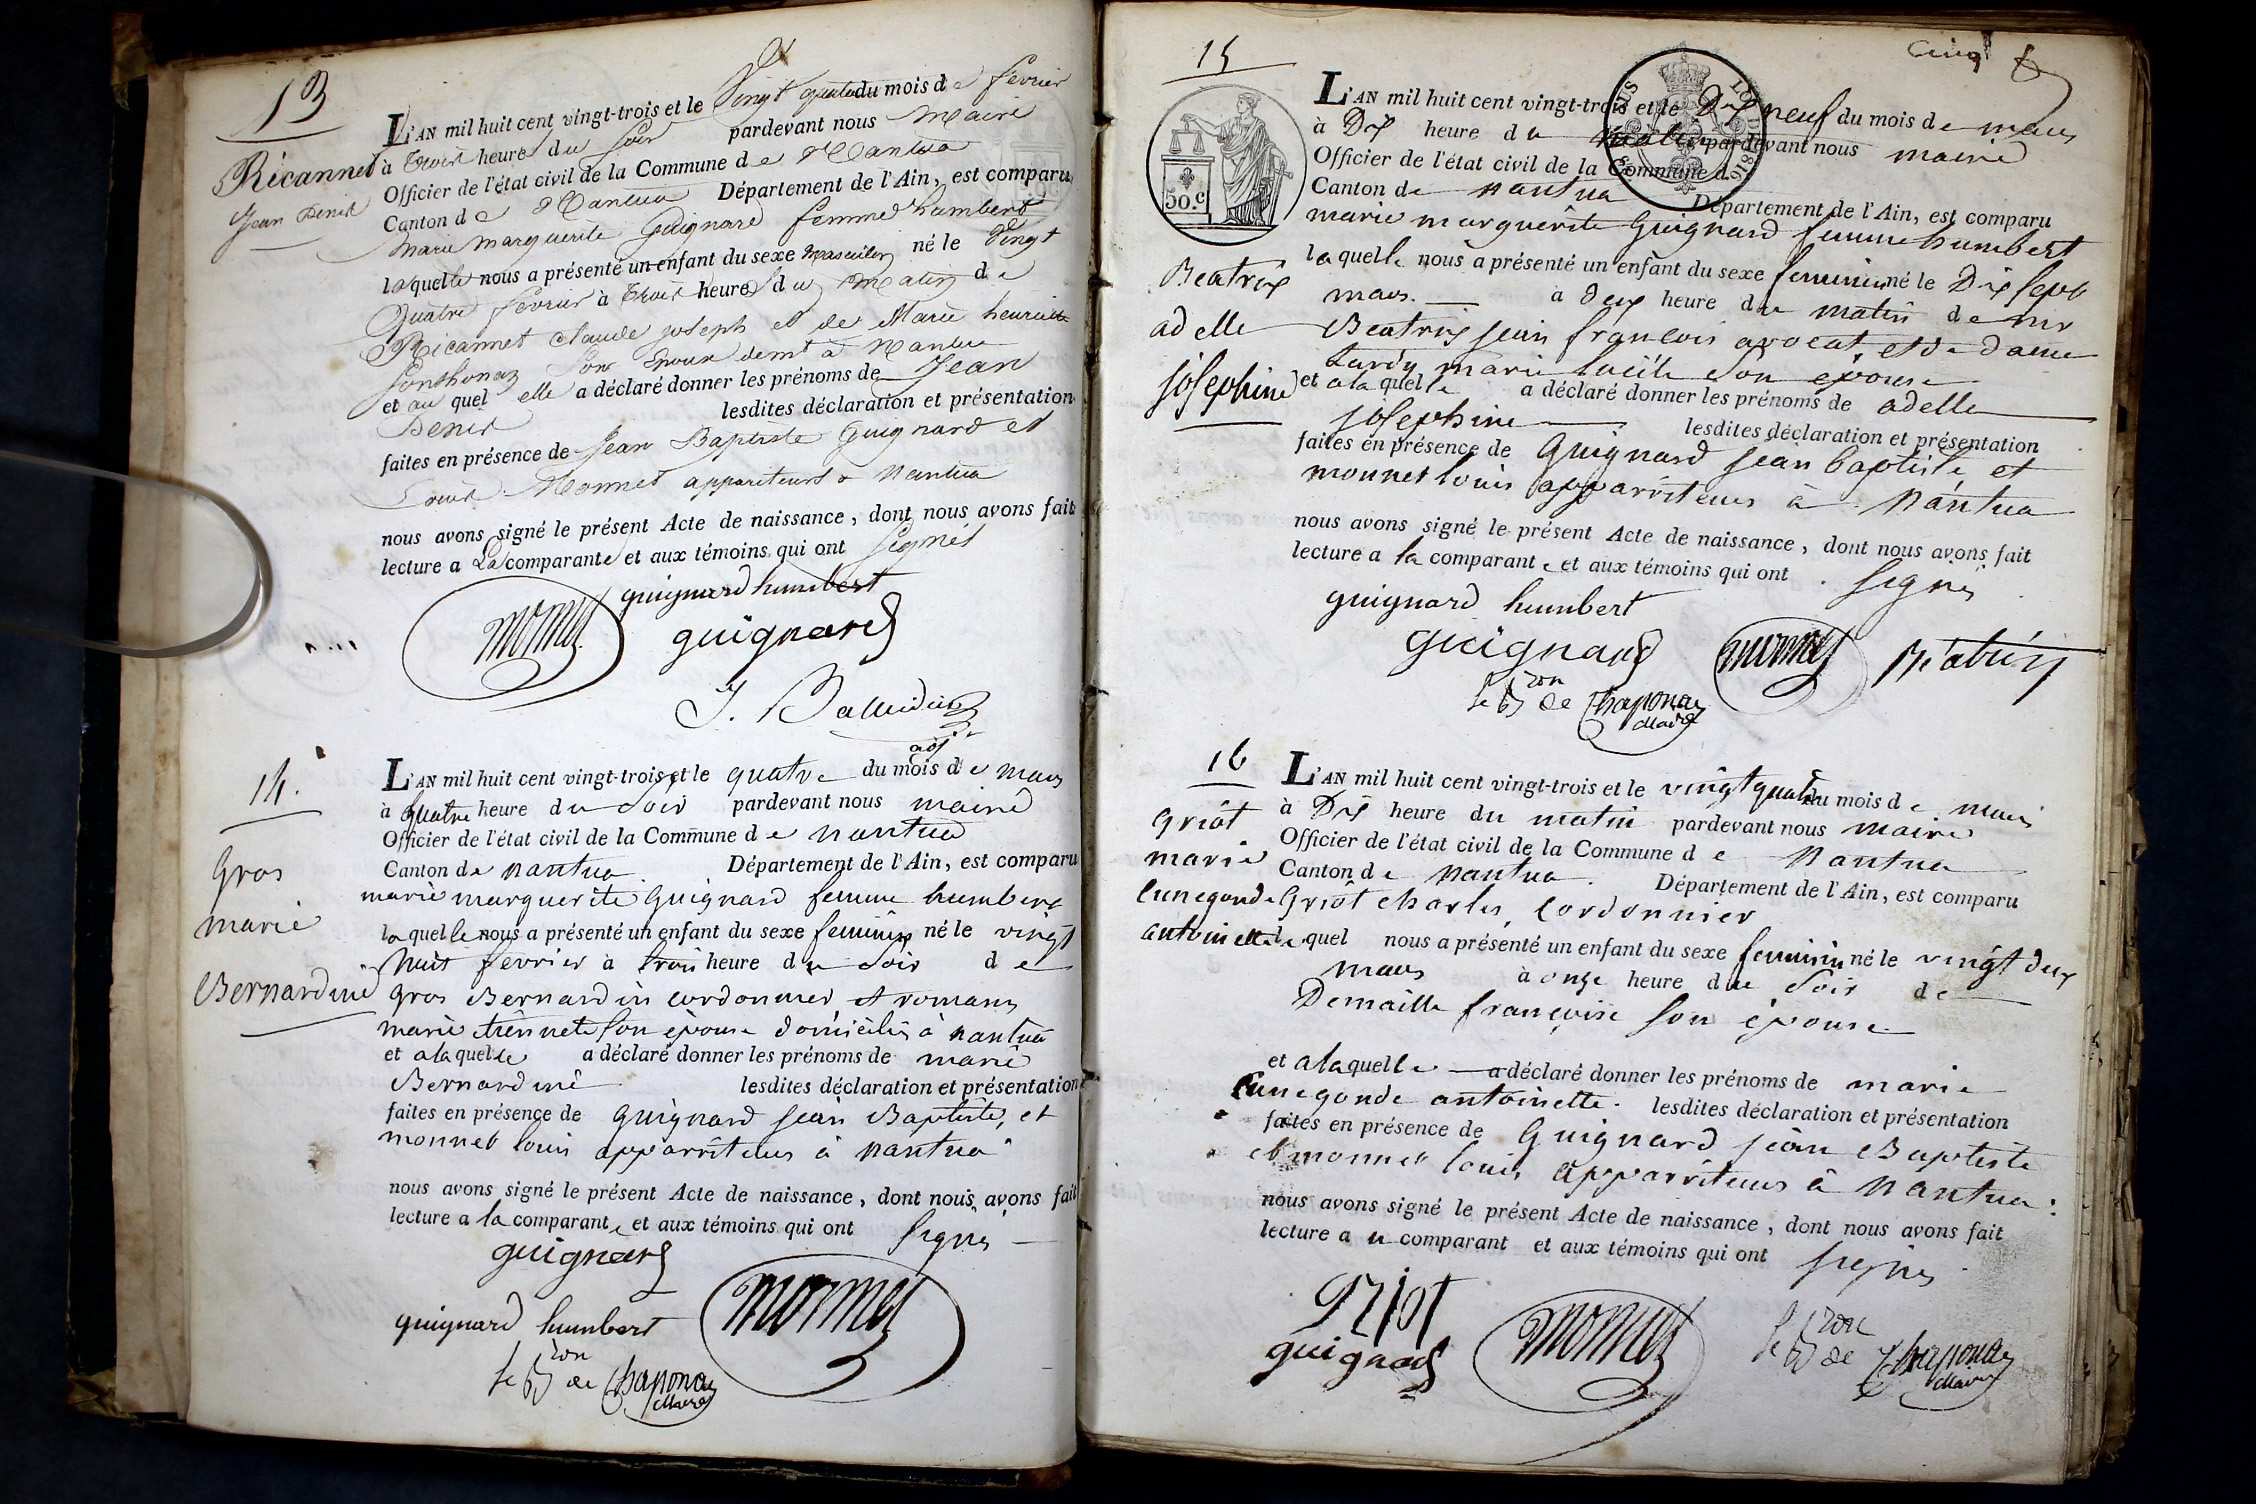 13
Ricannet
Jean Denis
L'AN mil huit cent vingt-trois et le Vingt quatre du mois de fevrier
à trois heures du soir pardevant nous Maire
Officier de l'état civil de la Commune de Nantua
Canton de Nantua Département de l'Ain, est comparu
Marie Marguerite Guignard femme humbert
laquelle nous a présenté un enfant du sexe masculin né le Vingt
Quatre fevrier à trois heures du Matin de
Ricannet Claude joseph et de Marie henriette
Ponthonaz Son Epoux demt à Nantua
et au quel elle a déclaré donner les prénoms de Jean
Denis lesdites déclaration et présentation
faites en présence de Jean Baptiste Guignard et
Louis Monnet appariteurs à Nantua
nous avons signé le présent Acte de naissance, dont nous avons fait
lecture a La comparante et aux témoins qui ont Signés
guignard humbert
monnet guignard
adj
14.
Gros
marie
Bernardine
L'AN mil huit cent vingt-trois et le quatre du mois de mars
à quatre heure du Soir pardevant nous maire
Officier de l'état civil de la Commune de nantua
Canton de nantua. Département de l'Ain, est comparu
marie marguerite Guignard femme humbert
laquelle nous a présenté un enfant du sexe feminin né le vingt
huit fevrier à trois heure du Soir de
Gros Bernardin cordonnier et romans
marie son épouse domiciliés à nantua
et a laquelle a déclaré donner les prénoms de marie
Bernardine lesdites déclaration et présentation
faites en présence de Guignard jean Baptiste, et
monnet louis apparriteurs à nantua
nous avons signé le présent Acte de naissance, dont nous avons fait
lecture a la comparante et aux témoins qui ont signés
guignard
guignard humbert monnet
le Bon de Chaponay
Maire
Cinq
15
Beatrix
adelle
josephine
50.c
L'AN mil huit cent vingt-trois et le Dix neuf du mois de mars
à Dix heure du matin pardevant nous maire
Officier de l'état civil de la Commune d
Canton de nantua Département de l'Ain, est comparu
marie marguerite Guignard femme humbert
laquelle nous a présenté un enfant du sexe feminin né le Dix sept
mars. à deux heure du matin de mr
Beatrix jean francois avocat, et de dame
tardy marie lucile son épouse
et a la quelle a déclaré donner les prénoms de adelle
josephine lesdites déclaration et présentation
faites en présence de Guignard jean baptiste et
monnet louis apparriteurs à Nantua
nous avons signé le présent Acte de naissance, dont nous avons fait
lecture a la comparante et aux témoins qui ont signés
guignard humbert
guignard monnet Béatrix
le Bon de Chaponay
Maire
16
griôt
marie
Cunegonde
antoinette
L'AN mil huit cent vingt-trois et le vingt quatre du mois de mars
à Dix heure du matin pardevant nous maire
Officier de l'état civil de la Commune de Nantua
Canton de nantua. Département de l'Ain, est comparu
Griôt charles, cordonnier
lequel nous a présenté un enfant du sexe feminin né le vingt deux
mars à onze heure du Soir de
Demaille françoise son épouse
et a laquelle a déclaré donner les prénoms de marie
Cunegonde antoinette. lesdites déclaration et présentation
faites en présence de Guignard jean Baptiste
et monnet louis apparriteurs à Nantua:
nous avons signé le présent Acte de naissance, dont nous avons fait
lecture a u comparant et aux témoins qui ont signés
griot
guignard monnet le Bon de Chaponay
Maire